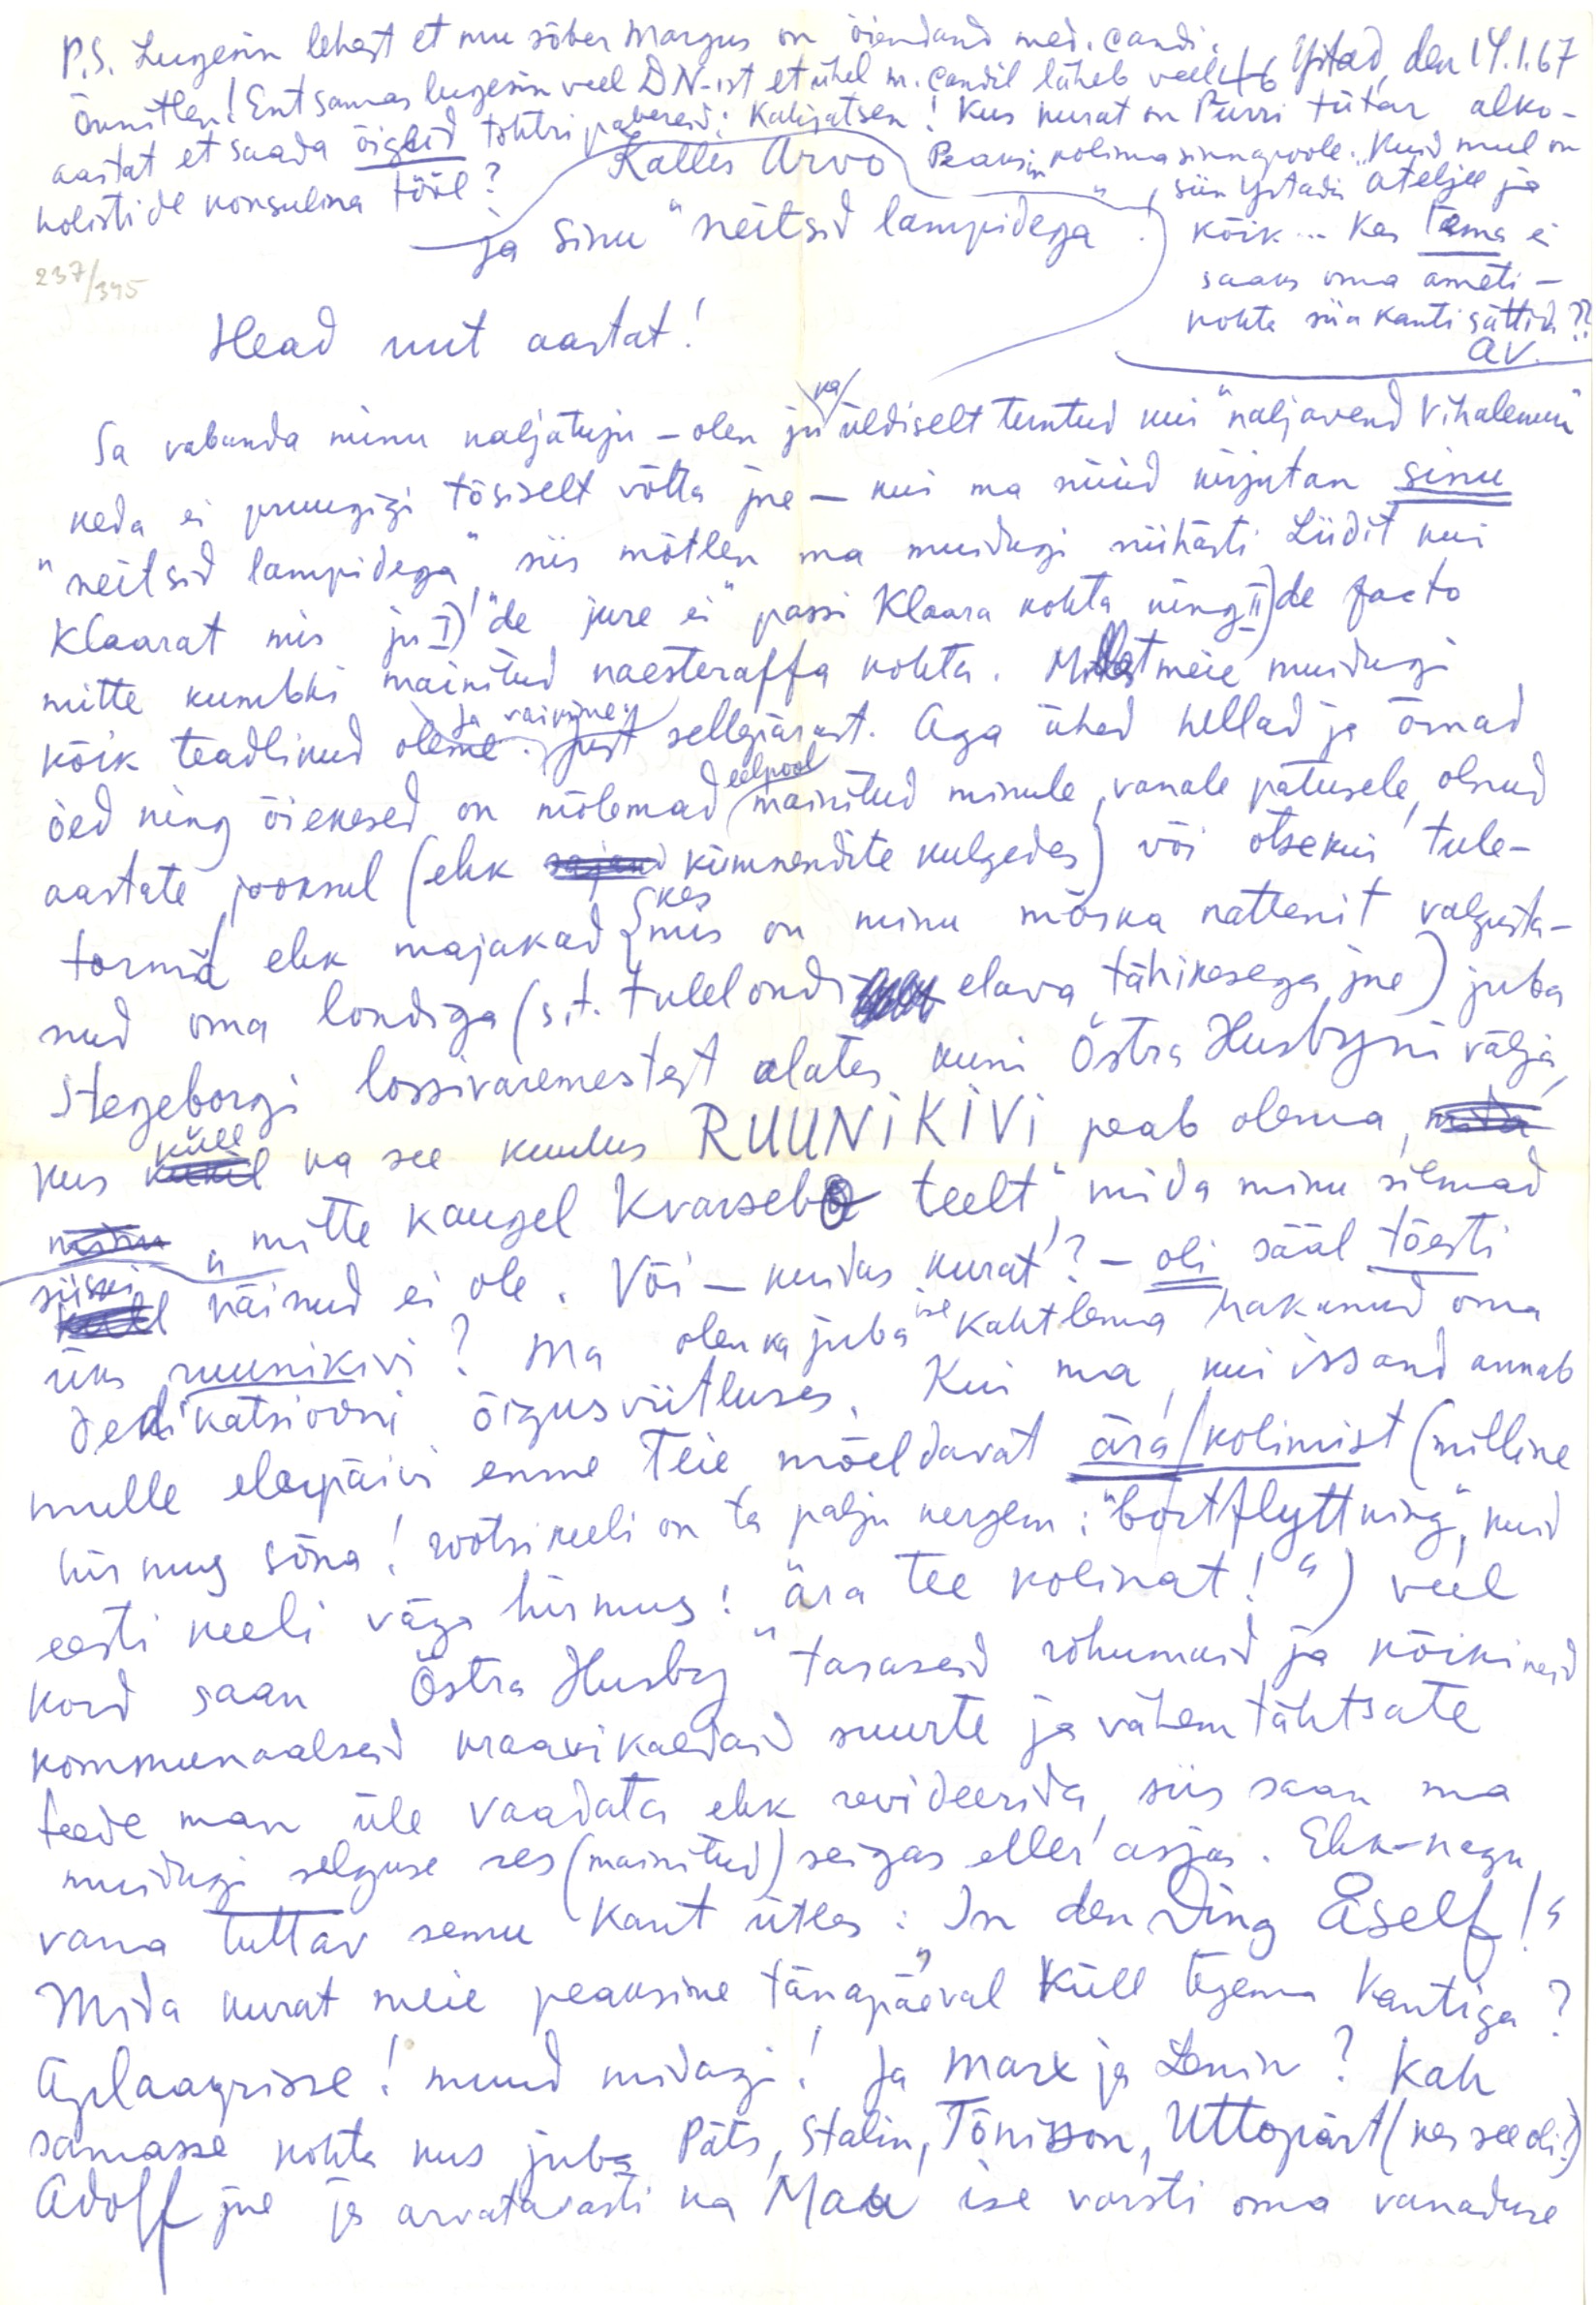 P.S. Lugesin lehest et mu sõber Margus on õiendand med. cand.
Ystad, den 14.1.67
Õnnitlen! Ent samas lugesin veel DN-ist et ühel m. candil läheb veel 4-6
aastat et saada õigeid tohtri pabereid: Kahjatsen! Kus kurat on Purri tütar alko-
holistide konsulina tööl?
Peaksin kolima sinnapoole. Kuid mul on
siin Ystadis ateljee ja
kõik... Kas tema ei
saaks oma ameti-
kohta siia kanti sättida??
AV.
Kallis Arvo
ja Sinu "neitsid lampidega".
237/395
Head uut aastat!
Sa vabanda minu naljatuju - olen ju ka üldiselt tuntud kui "naljavend Vihalemm"
keda ei pruugigi tõsiselt võtta jne - kui ma nüüd kirjutan sinu
"neitsid lampidega", siis mõtlen ma muidugi niihästi Liidit kui
Klaarat mis ju I) "de jure ei" passi Klaara kohta ning II) de facto
mitte kumbki mainitud naesteraffa kohta. Millest meie muidugi
kõik teadlikud oleme. ja vaikime just sellepärast. Aga ühed hellad ja õrnad
õed ning õiekesed on mõlemad eelpool mainitud minule, vanale patusele, olnud
aastate jooksul (ehk sajand kümnendite kulgedes) või otsekui tule-
tornid ehk majakad {kes mis on minu mõska nattenit valgusta-
nud oma londiga (s.t. tulelondi elava tähikesega jne) juba
Stegeborgi lossivaremestest alates kuni Östra Husbyni välja,
kus küll ka see kuulus RUUNIKIVI peab olema, mida
minu "mitte kaugel Kvarsebo teelt", mida minu silmad
siiski näinud ei ole. Või - kuidas kurat? - oli sääl tõesti
üks ruunikivi? Ma olen ka juba ise kahtlema hakanud oma
dedikatsiooni õigusviitluses. Kui ma, kui issand annab
mulle elupäivi enne Teie mõeldavat ära/kolimist (milline
hirmus sõna! rootsikeeli on ta palju kergem: "bortflyttning", kuid
eesti keeli väga hirmus: "ära tee kolinat!") veel
kord saan Östra Husby "tasaseid rohumaid ja kõiki neid
kommunaalseid kraavikaldaid suurte ja vähem tähtsate
teede man üle vaadata ehk revideerida, siis saan ma
muidugi selguse ses (mainitud) seigas eller asjas. Ehk - nagu
vana tuttav semu Kant ütles: "In den Ding Åself!"
Mida kurat meie peaksime tänapäeval küll tegema Kantiga?
Ajalaagrisse! muud midagi! Ja Marx ja Lenin? Kah
samasse kohta kus juba Päts, Stalin, Tõnisson, Uttopärt (kes see oli?)
Adolf jne ja arvatavasti ka Maa ise varsti oma vanaduse